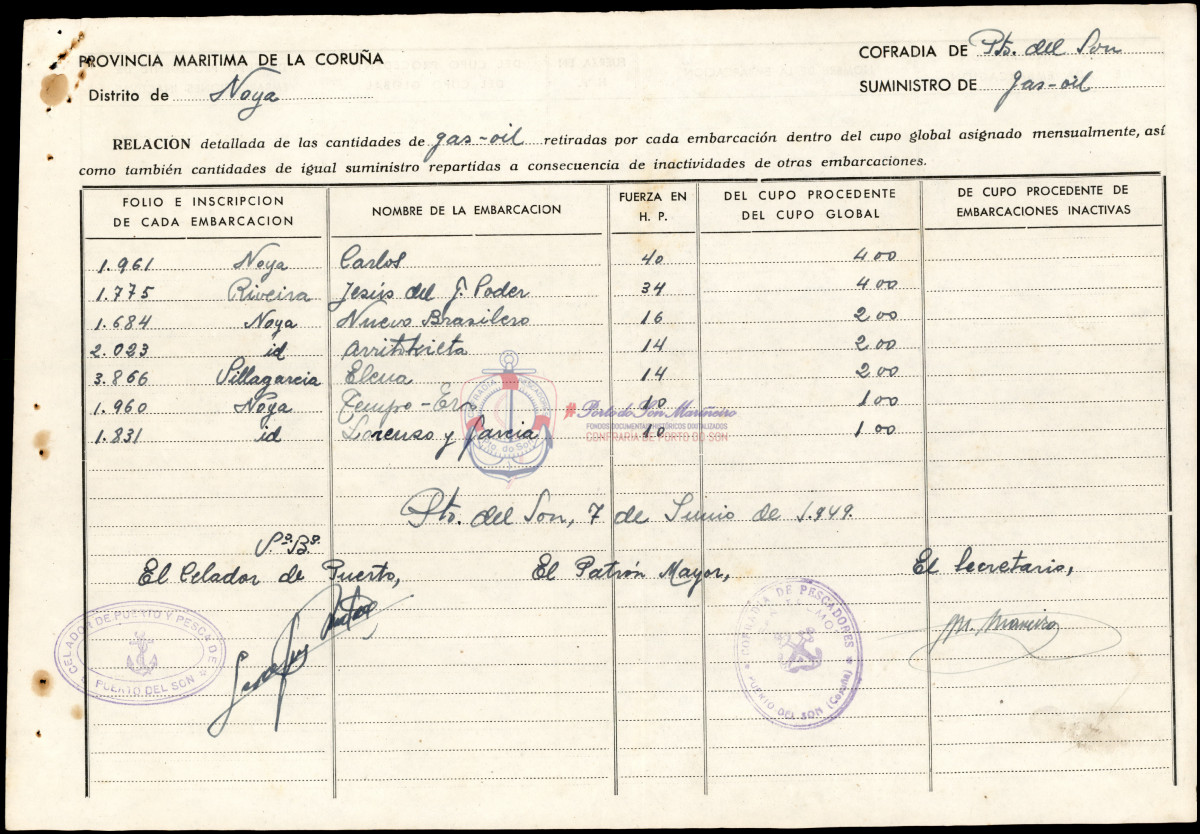 PROVINCIA MARITIMA DE LA CORUÑA
COFRADIA DE Pto. del Son
Distrito de Noya
SUMINISTRO DE gas-oil
RELACION detallada de las cantidades de gas-oil retiradas por cada embarcación dentro del cupo global asignado mensualmente, así
como también cantidades de igual suministro repartidas a consecuencia de inactividades de otras embarcaciones.
FOLIO E INSCRIPCION DE CADA EMBARCACION
NOMBRE DE LA EMBARCACION
FUERZA EN H. P.
DEL CUPO PROCEDENTE DEL CUPO GLOBAL
DE CUPO PROCEDENTE DE EMBARCACIONES INACTIVAS
1.961 Noya Carlos 40 400
1.775 Riveira Jesús del J. Poder 34 400
1.684 Noya Nuevo Brasilero 16 200
2.023 id 14 200
3.866 Villagarcia Elena 14 200
1.960 Noya Tempo-Ero 10 100
1.831 id Lorenzo y Garcia 10 100
# Porto do Son Mariñeiro
FONDOS DOCUMENTAIS HISTÓRICOS DIXITALIZADOS
CONFRARÍA DE PORTO DO SON
Pto. del Son, 7 de Junio de 1.949.
V.º B.º
El Celador de Puerto,
El Patrón Mayor,
El Secretario,
CELADOR DE PUERTO Y PESCA DE
PUERTO DEL SON
COFRADIA DE PESCADORES
PUERTO DEL SON (Coruña)